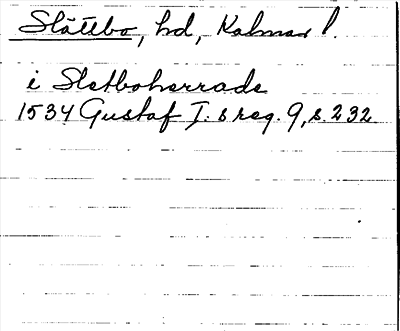 Slättbo, hd, Kalmar l.
i Sletboherrade
1534 Gustaf I:s reg. 9, s. 232